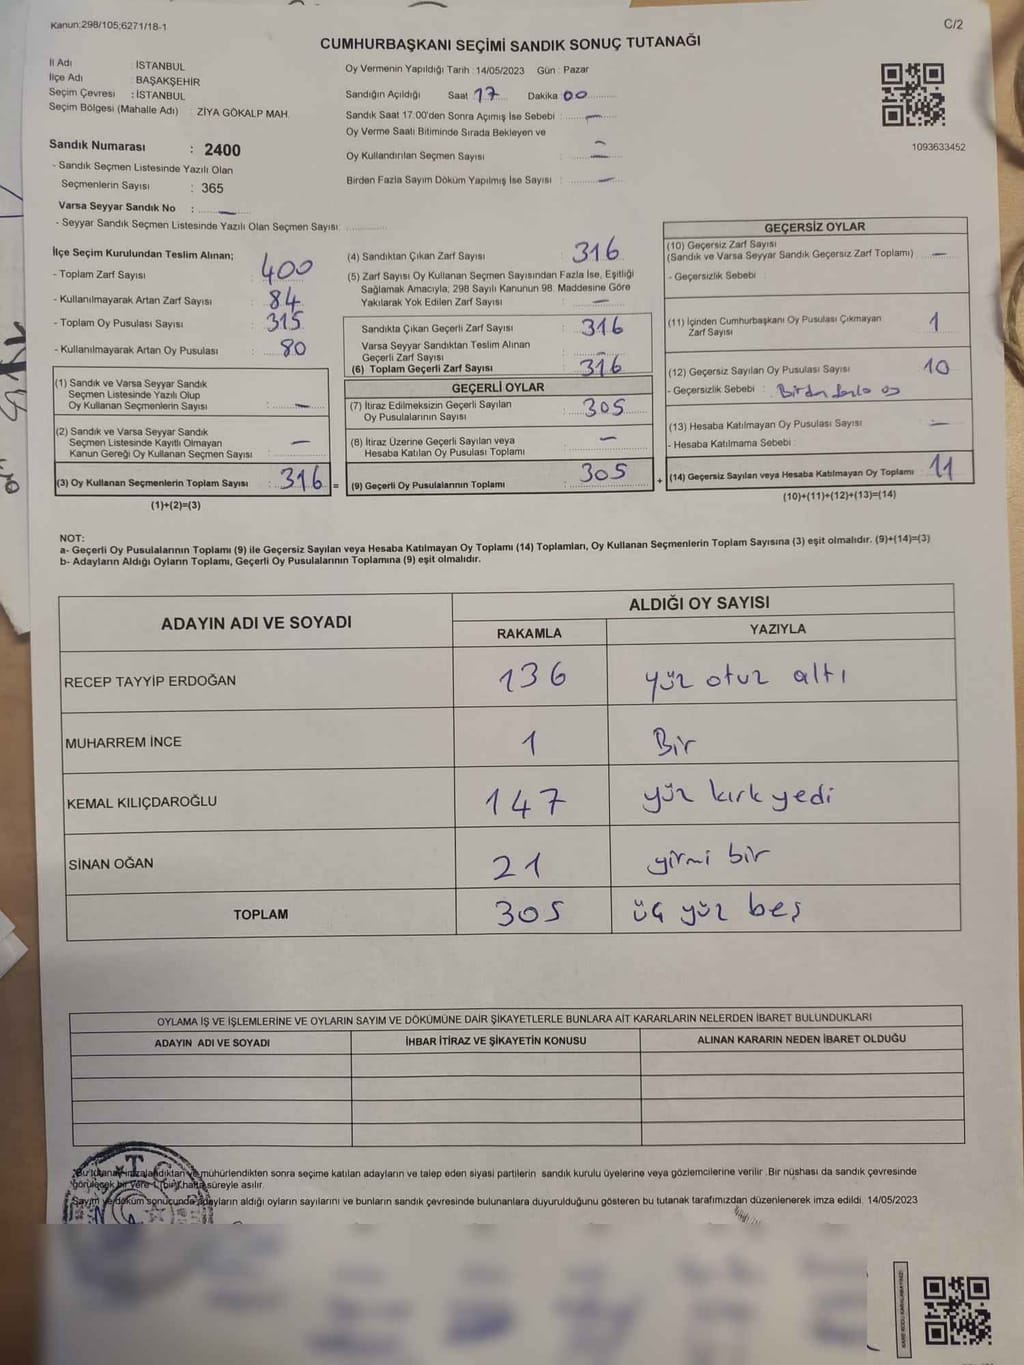 Kanun:298/105;6271/18-1
C/2
CUMHURBAŞKANI SEÇİMİ SANDIK SONUÇ TUTANAĞI
İl Adı : İSTANBUL
İlçe Adı : BAŞAKŞEHİR
Seçim Çevresi : İSTANBUL
Seçim Bölgesi (Mahalle Adı) : ZİYA GÖKALP MAH.
Sandık Numarası : 2400
- Sandık Seçmen Listesinde Yazılı Olan
Seçmenlerin Sayısı : 365
Varsa Seyyar Sandık No : —
- Seyyar Sandık Seçmen Listesinde Yazılı Olan Seçmen Sayısı:
Oy Vermenin Yapıldığı Tarih : 14/05/2023 Gün : Pazar
Sandığın Açıldığı Saat 17 Dakika 00
Sandık Saat 17:00'den Sonra Açımış İse Sebebi : —
Oy Verme Saati Bitiminde Sırada Bekleyen ve
Oy Kullandırılan Seçmen Sayısı : —
Birden Fazla Sayım Döküm Yapılmış İse Sayısı : —
1093633452
İlçe Seçim Kurulundan Teslim Alınan;
- Toplam Zarf Sayısı : 400
- Kullanılmayarak Artan Zarf Sayısı : 84
- Toplam Oy Pusulası Sayısı : 315
- Kullanılmayarak Artan Oy Pusulası : 80
(1) Sandık ve Varsa Seyyar Sandık
Seçmen Listesinde Yazılı Olup
Oy Kullanan Seçmenlerin Sayısı : —
(2) Sandık ve Varsa Seyyar Sandık
Seçmen Listesinde Kayıtlı Olmayan
Kanun Gereği Oy Kullanan Seçmen Sayısı : —
(3) Oy Kullanan Seçmenlerin Toplam Sayısı : 316 =
(1)+(2)=(3)
(4) Sandıktan Çıkan Zarf Sayısı : 316
(5) Zarf Sayısı Oy Kullanan Seçmen Sayısından Fazla İse, Eşitliği
Sağlamak Amacıyla; 298 Sayılı Kanunun 98. Maddesine Göre
Yakılarak Yok Edilen Zarf Sayısı : —
Sandıkta Çıkan Geçerli Zarf Sayısı : 316
Varsa Seyyar Sandıktan Teslim Alınan
Geçerli Zarf Sayısı : —
(6) Toplam Geçerli Zarf Sayısı : 316
GEÇERLİ OYLAR
(7) İtiraz Edilmeksizin Geçerli Sayılan
Oy Pusulalarının Sayısı : 305
(8) İtiraz Üzerine Geçerli Sayılan veya
Hesaba Katılan Oy Pusulası Toplamı : —
(9) Geçerli Oy Pusulalarının Toplamı : 305
GEÇERSİZ OYLAR
(10) Geçersiz Zarf Sayısı
(Sandık ve Varsa Seyyar Sandık Geçersiz Zarf Toplamı) : —
- Geçersizlik Sebebi :
(11) İçinden Cumhurbaşkanı Oy Pusulası Çıkmayan
Zarf Sayısı : 1
(12) Geçersiz Sayılan Oy Pusulası Sayısı : 10
- Geçersizlik Sebebi : Birden fazla oy
(13) Hesaba Katılmayan Oy Pusulası Sayısı : —
- Hesaba Katılmama Sebebi :
+ (14) Geçersiz Sayılan veya Hesaba Katılmayan Oy Toplamı : 11
(10)+(11)+(12)+(13)=(14)
NOT:
a- Geçerli Oy Pusulalarının Toplamı (9) ile Geçersiz Sayılan veya Hesaba Katılmayan Oy Toplamı (14) Toplamları, Oy Kullanan Seçmenlerin Toplam Sayısına (3) eşit olmalıdır. (9)+(14)=(3)
b- Adayların Aldığı Oyların Toplamı, Geçerli Oy Pusulalarının Toplamına (9) eşit olmalıdır.
ADAYIN ADI VE SOYADI
ALDIĞI OY SAYISI
RAKAMLA YAZIYLA
RECEP TAYYİP ERDOĞAN 136 yüz otuz altı
MUHARREM İNCE 1 Bir
KEMAL KILIÇDAROĞLU 147 yüz kırk yedi
SİNAN OĞAN 21 yirmi bir
TOPLAM 305 üç yüz beş
OYLAMA İŞ VE İŞLEMLERİNE VE OYLARIN SAYIM VE DÖKÜMÜNE DAİR ŞİKAYETLERLE BUNLARA AİT KARARLARIN NELERDEN İBARET BULUNDUKLARI
ADAYIN ADI VE SOYADI İHBAR İTİRAZ VE ŞİKAYETİN KONUSU ALINAN KARARIN NEDEN İBARET OLDUĞU
Bu tutanak imzalandıktan ve mühürlendikten sonra seçime katılan adayların ve talep eden siyasi partilerin sandık kurulu üyelerine veya gözlemcilerine verilir. Bir nüshası da sandık çevresinde
görülecek bir yere 1 (bir) hafta süreyle asılır.
Sayım ve döküm sonucunda adayların aldığı oyların sayılarını ve bunların sandık çevresinde bulunanlara duyurulduğunu gösteren bu tutanak tarafımızdan düzenlenerek imza edildi. 14/05/2023